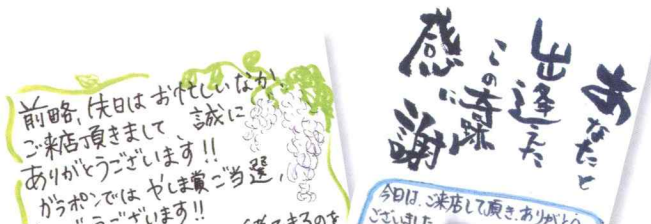 前略、先日は お忙しいなか、
ご来店頂きまして 誠に
ありがとうございます!!
ガラポンでは やしま賞ご当選、
ございます!!
あなたと
出逢えた
この奇跡
に
感謝
今日は、ご来店して頂き、ありがとう
ございました